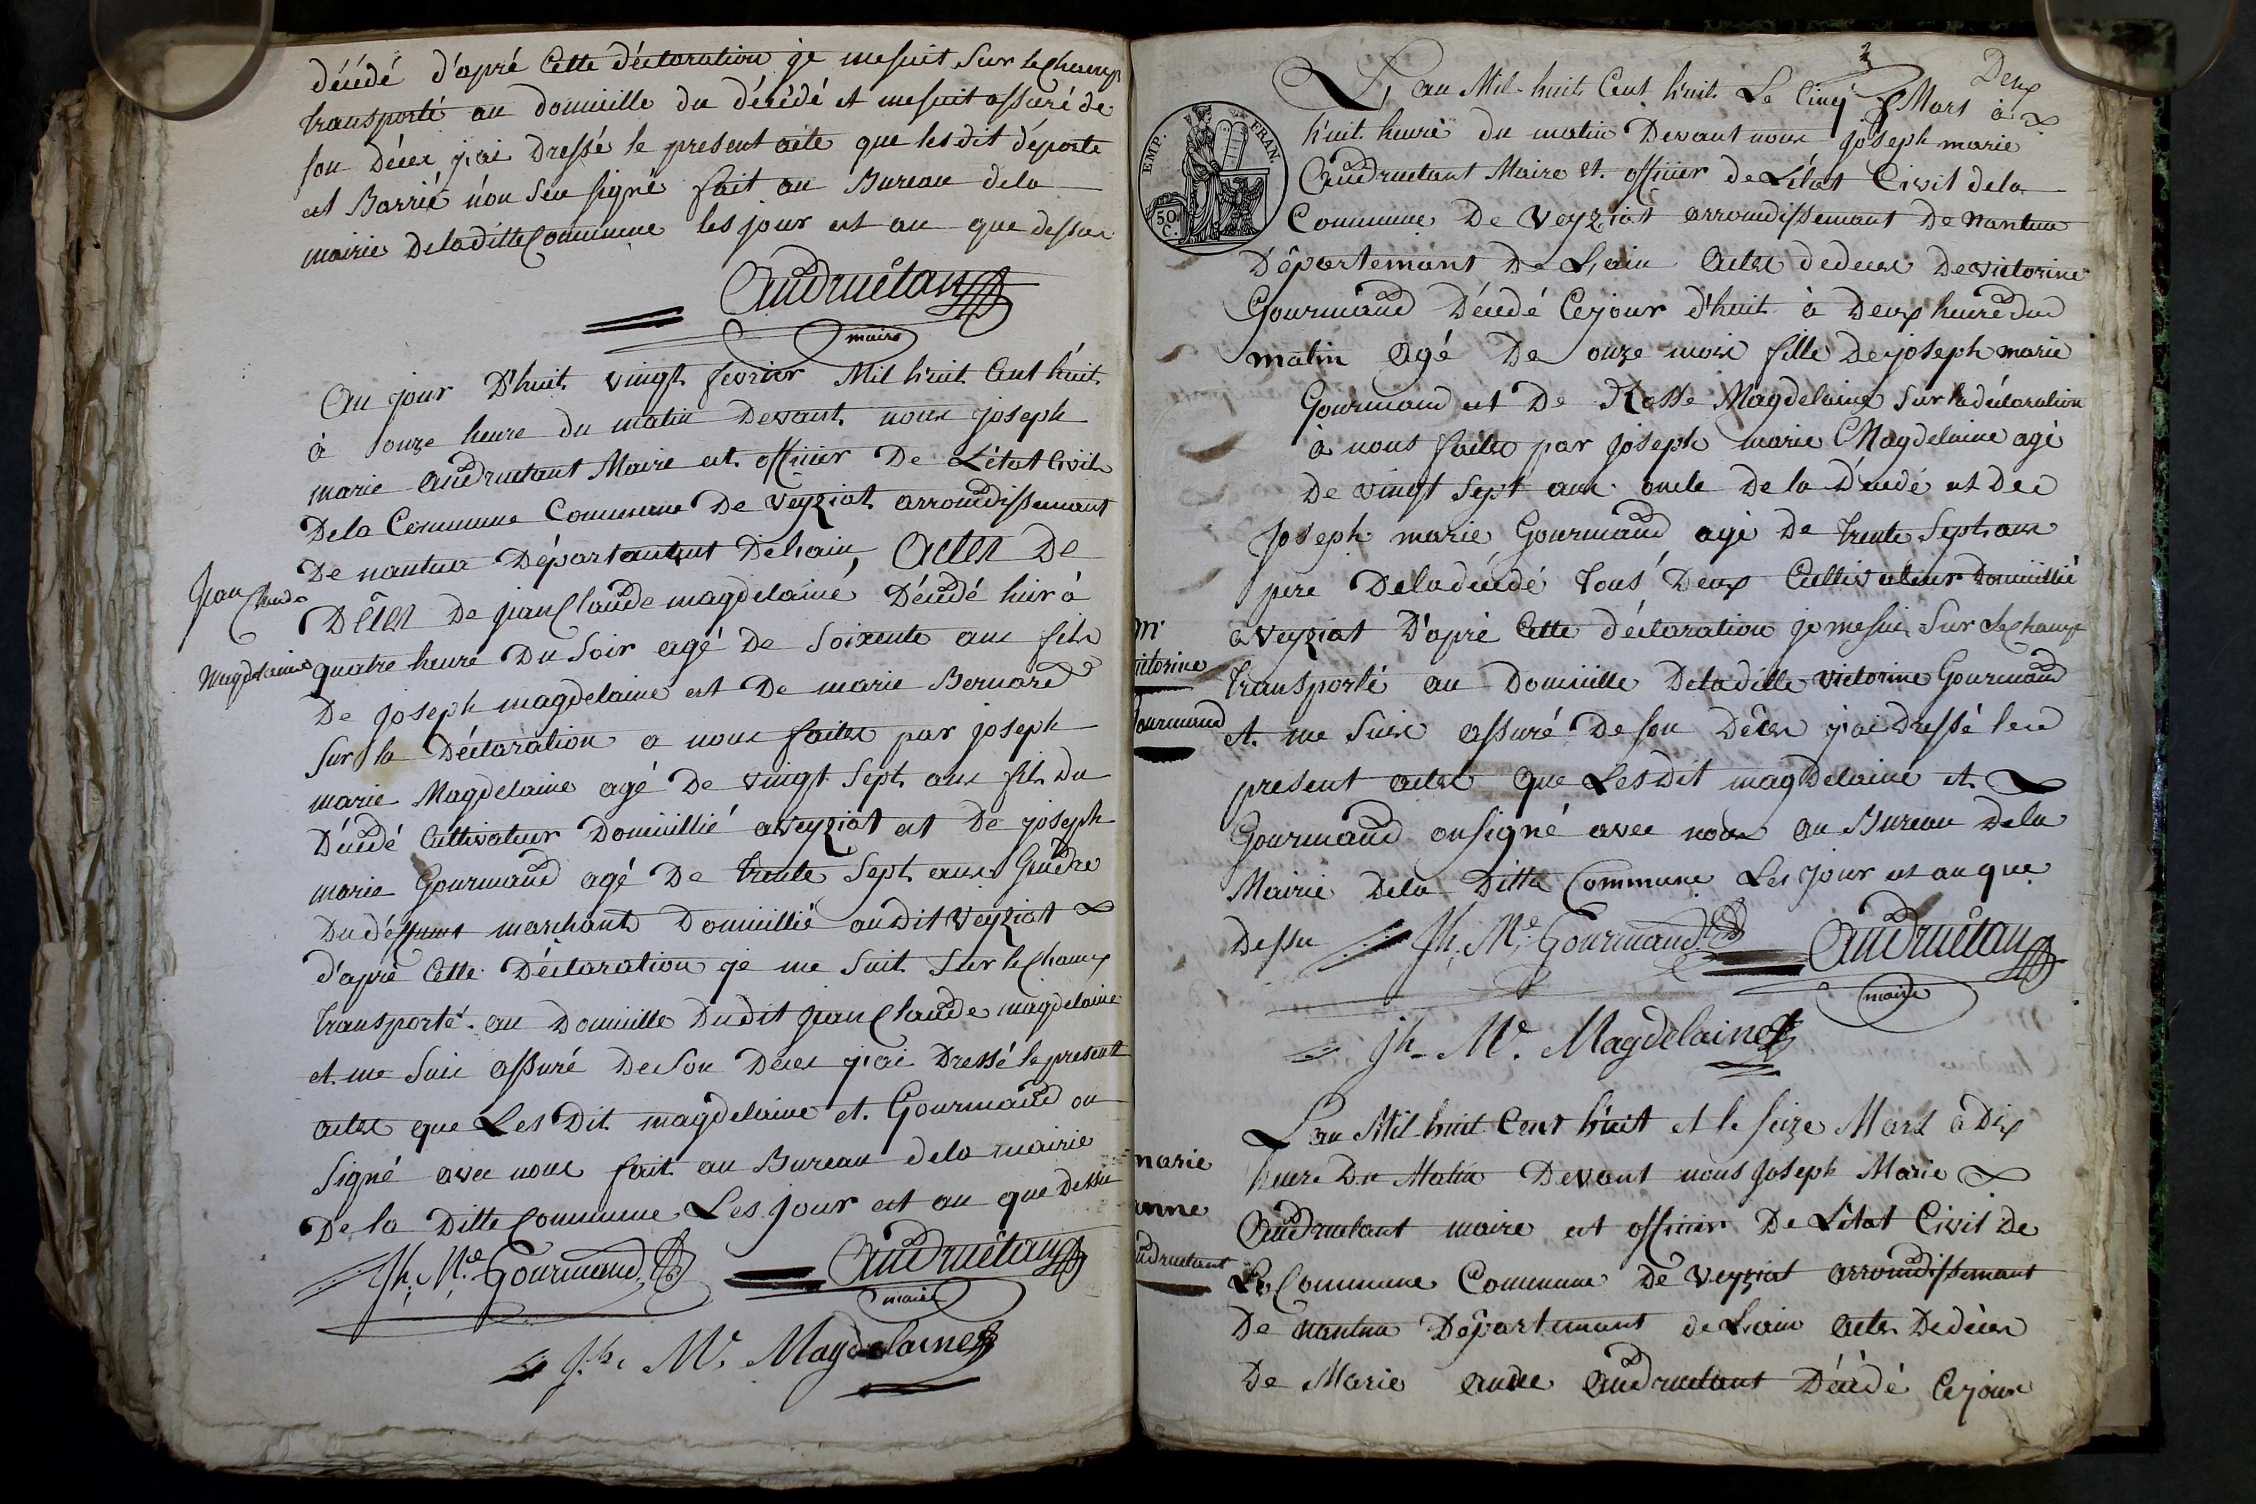 décédé d'apré Cette déclaration je mesuit Sur le Champ
transporté au domicille du décédé et mesuit assuré de
son décer j'ai Dressé le present acte que les dit déporte
est Barrié non Seu signé fait au Bureau dela
mairie Deladitte Commune les jour est an que dessus
Audruétan
maire
Au jour D'huit vingt fevrier Mil huit Cent huit
à onze heure du matin Devant nous joseph
marie Audruetant Maire et officier De L'état Civil
Dela Commune Commune De Veyziat arrondissemant
De nantua Départemant De Lain, Actes De
Jean Claude
Magdelaine
Décer De jean Claude magdelaine Décédé hier à
quatre heure Du Soir agé De Soixente ans fils
De joseph magdelaine est De marie Bernard
Sur la Déclaration a nous faites par joseph
marie Magdelaine agé De vingt Sept ans fils Du
Décédé Cultivateur Domicillié aveyziat est De joseph
marie Gourmaud agé De trente Sept ans Gendre
Dudéffunt marchant Domicillié audit Veyziat
d'apré Cette Déclaration je me Suit Sur le Champ
transporté au Domicille Dudit jean Claude magdelaine
et me Suis assuré De Son Décer j'ai Dressé le present
actes que Les Dit magdelaine et Gourmaud on
Signé avec nous fait au Bureau dela mairie
De la Ditte Commune Les Jour est an que Dessu
Jh. Me. Gourmaud
Audruétan
maire
Jh. Me. Magdelaine
2
Deux
L'an Mil huit Cent huit Le Cinq Mars à
huit heure du matin Devant nous joseph marie
Audruetant Maire et officier de L'état Civil dela
EMP. FRAN.
50 C.
Commune De Veyziat arrondissemant De nantua
Départemant De L'ain Actes dedecer De victorine
Gourmaud Décédé Cejour d'huit à Deux heure du
matin agé De onze mois fille De joseph marie
Gourmaud est De Rosse Magdelaine Sur la déclaration
à nous faites par joseph marie Magdelaine agé
De vingt Sept ans oncle De la Décédé est De
Joseph marie Gourmaud agé De trente Sept ans
pere Deladécédé tous Deux Cultivateur Domicillié
aveyziat D'apré Cette déclaration je mesuis Sur le Champ
m
ictorine
ourmaud
transporté au Domicille Deladitte Victorine Gourmaud
et me Suis assuré De Son Décer j'ai Dressé le
present actes que Les Dit magdelaine et
Gourmaud onsigné avec nous au Bureau Dela
Mairie Dela Ditte Commune Les Jour est an que
Dessu
Jh. Me. Gourmaud
Audruétan
maire
Jh. Me. Magdelaine
L'an Mil huit Cent huit et le seize Mars à Dix
marie
anne
udruetant
heure Du Matin Devant nous Joseph Marie
Audruetant maire est officier De L'état Civil de
La Commune Commune De Veyziat arrondissemant
De nantua Départemant de L'ain actes Dedécer
De Marie anne Audruetant Décédé Cejour